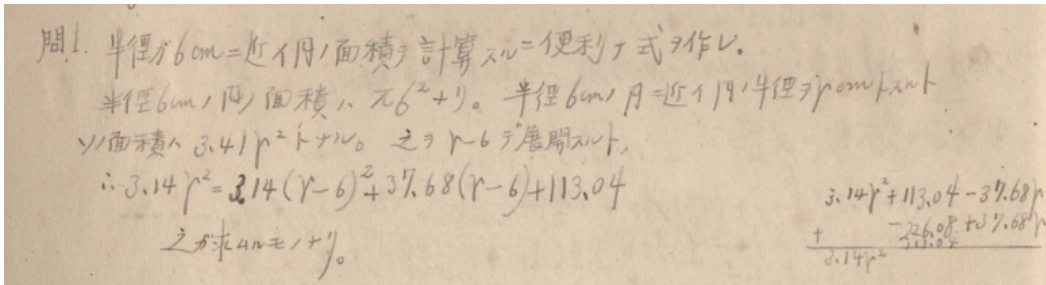 問1. 半徑ガ6cmニ近イ円ノ面積ヲ計算スルニ便利ナ式ヲ作レ.
半徑6cmノ円ノ面積ハ π6²ナリ。半徑6cmノ円ニ近イ円ノ半徑ヲrcmトスルト
ソノ面積ハ 3.41r²トナル。之ヲr-6デ展開スルト,
∴ 3.14r²=3.14(r-6)²+37.68(r-6)+113.04
之ガ求ムルモノナリ。
3.14r²+113.04-37.68r
+ -226.08+37.68r
3.14r²